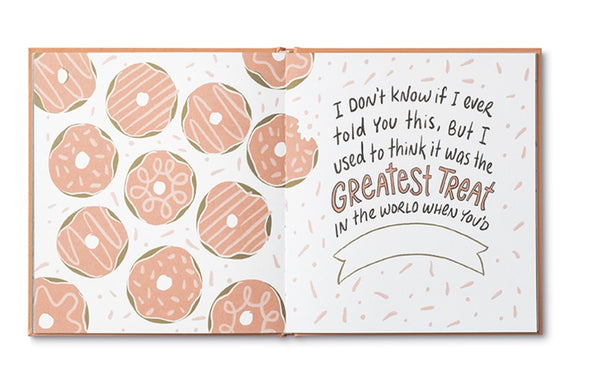 I DON'T KNOW if I ever
told you this, But I
used to think it was the
GReatest Treat
in the world when you'd